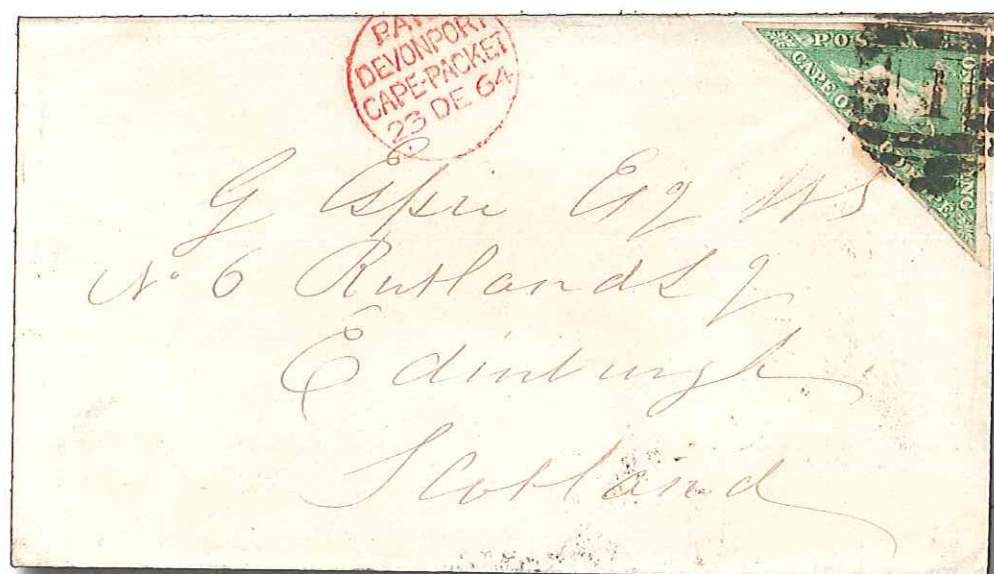 PAID
DEVONPORT
CAPE-PACKET
23 DE 64
POSTAGE
CAPE OF GOOD HOPE
ONE SHILLING
1
G Espin Esq WS
No 6 Rutland Sq
Edinburgh
Scotland